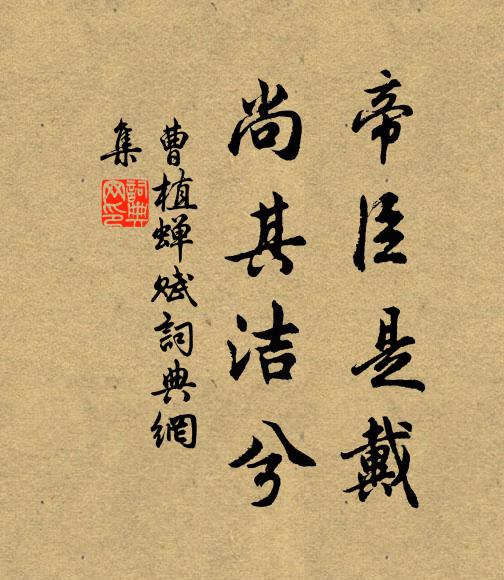 帝臣是戴
尚其洁兮
曹植蝉赋詞典網
集
詞典网印